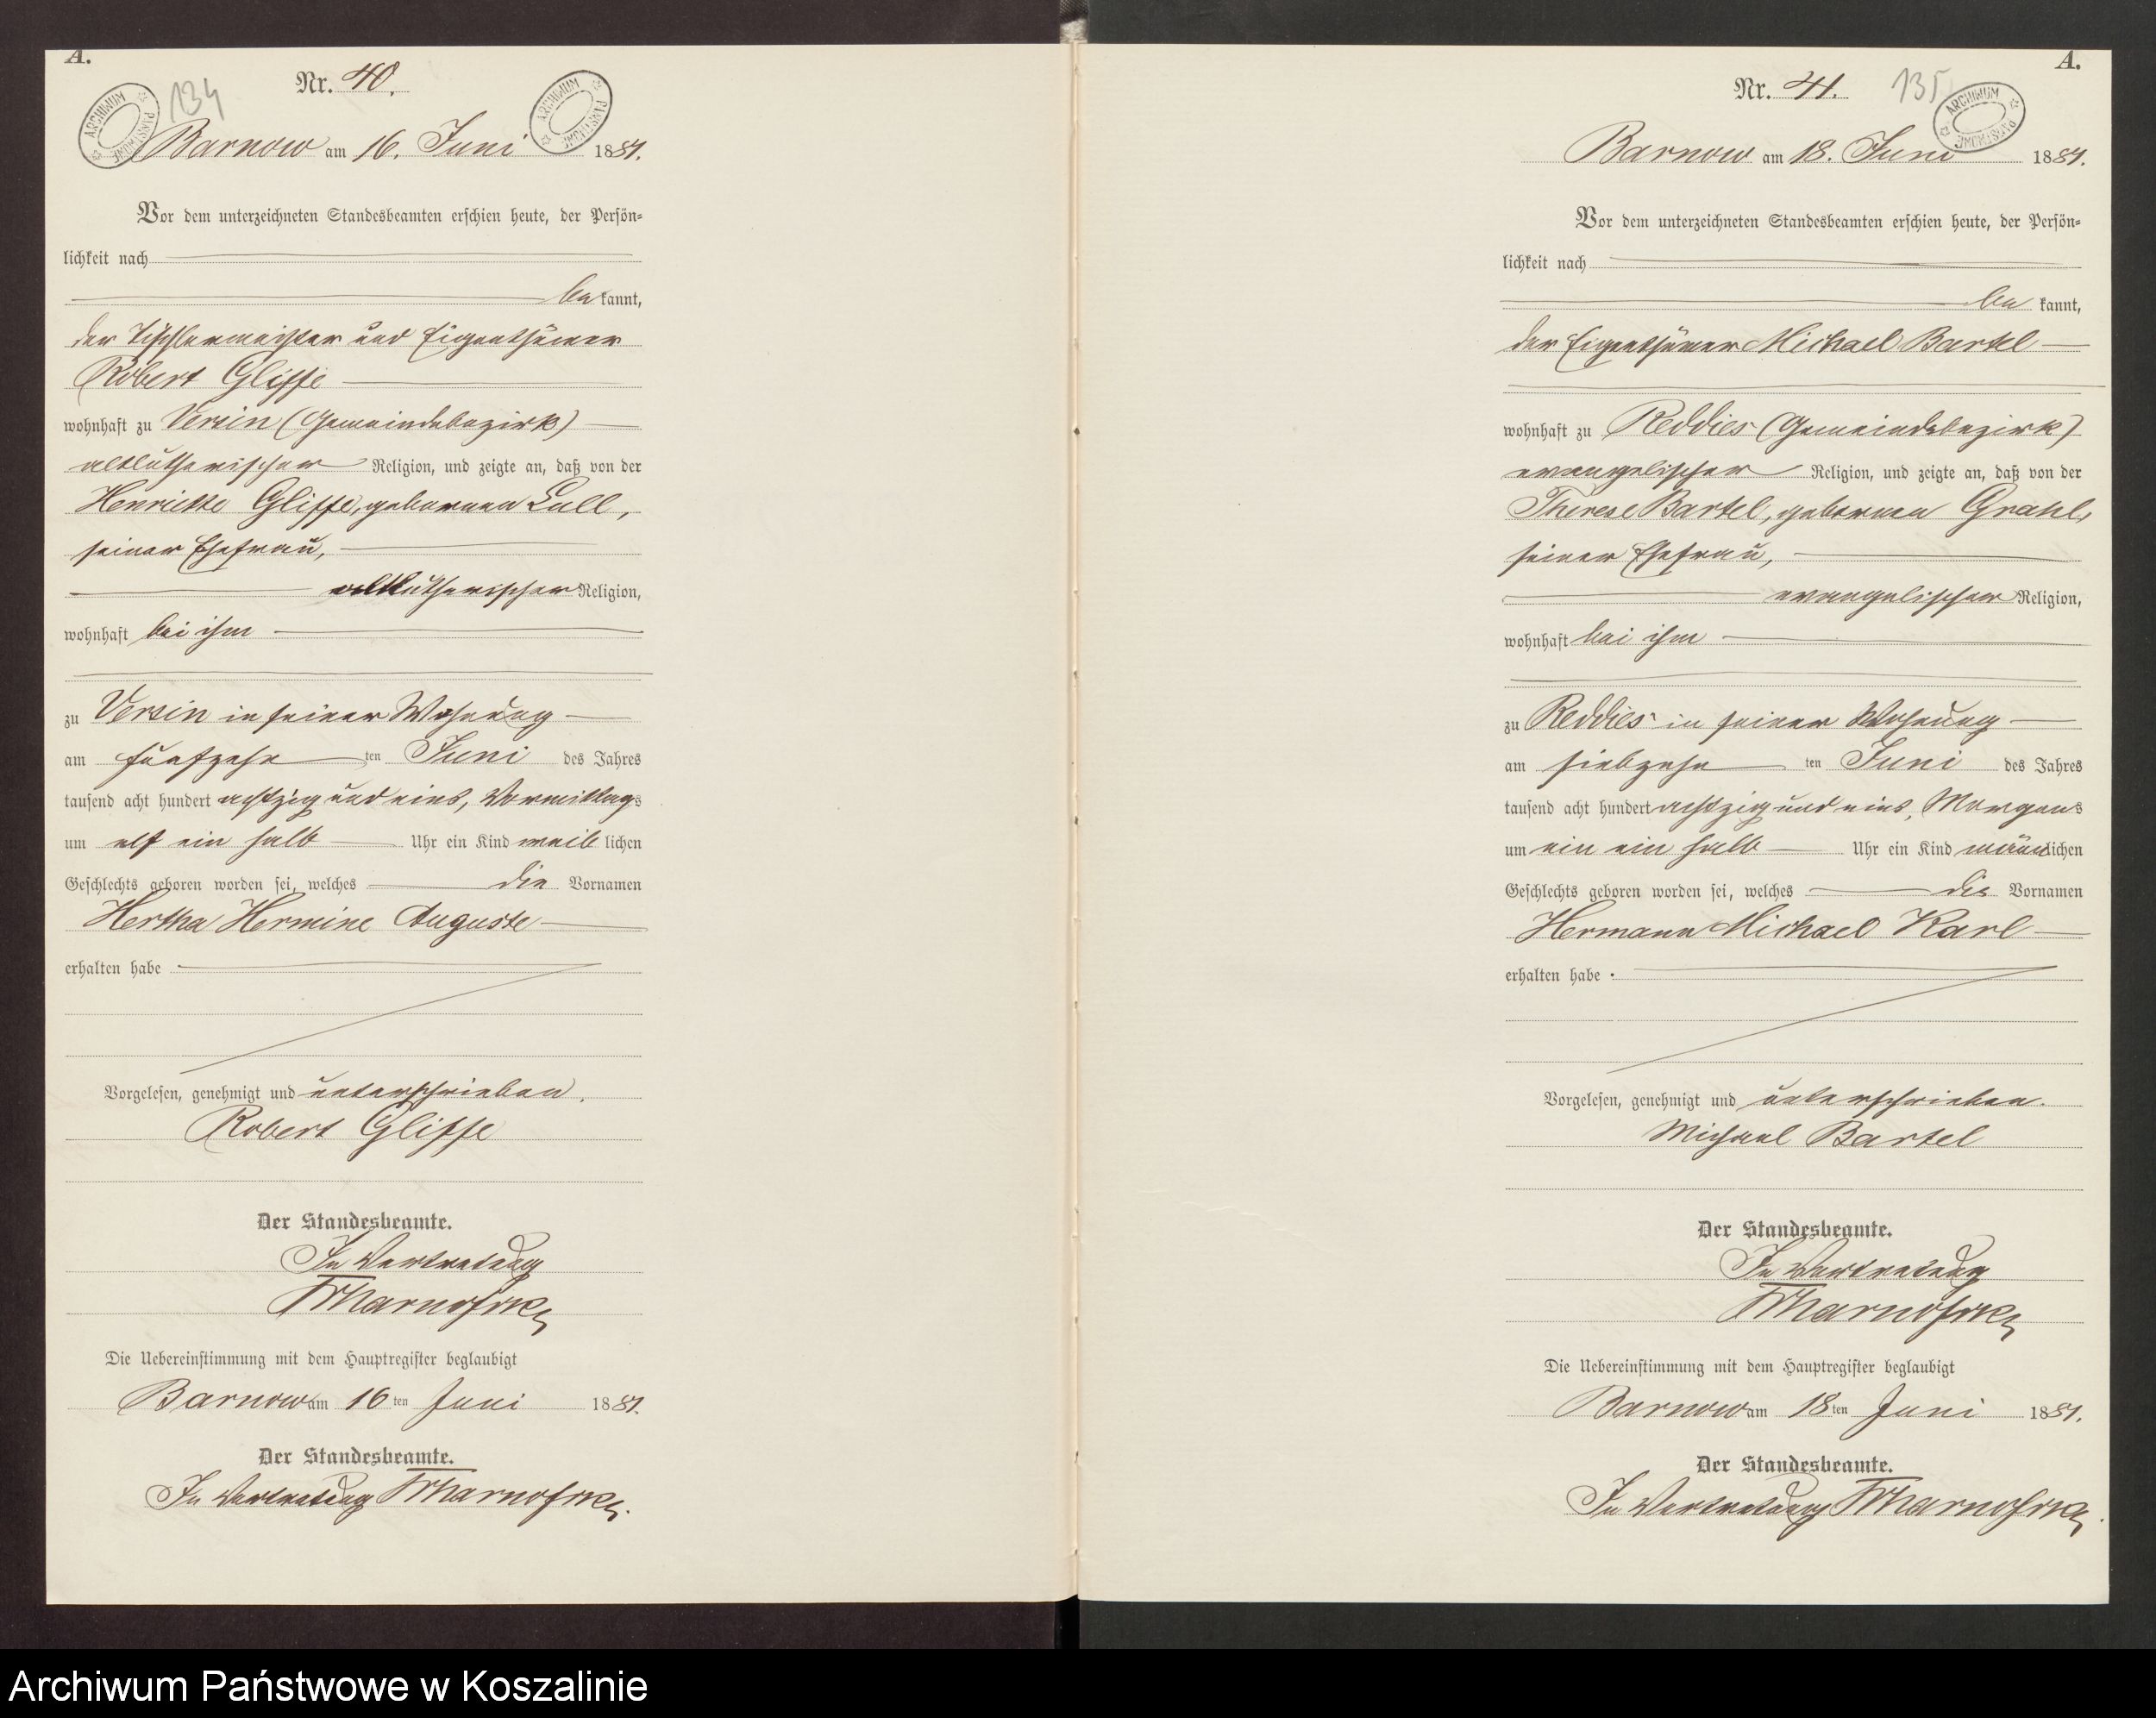 A.
134
Nr. 40.
ARCHIWUM PAŃSTWOWE
ARCHIWUM PAŃSTWOWE
Barnow am 16. Juni 1881.
Vor dem unterzeichneten Standesbeamten erschien heute, der Persön-
lichkeit nach
be kannt,
der Tischlermeister und Eigenthümer
Robert Gliffe
wohnhaft zu Versin (Gemeindebezirk)
altlutherischer Religion, und zeigte an, daß von der
Henriette Gliffe, geborenen Lull,
seiner Ehefrau,
altlutherischer Religion,
wohnhaft bei ihm
zu Versin in seiner Wohnung
am fünfzehn ten Juni des Jahres
tausend acht hundert achtzig und eins, Vormittags
um elf ein halb Uhr ein Kind weib lichen
Geschlechts geboren worden sei, welches die Vornamen
Hertha Hermine Auguste
erhalten habe
Vorgelesen, genehmigt und unterschrieben.
Robert Gliffe
Der Standesbeamte.
In Vertretung
Die Uebereinstimmung mit dem Hauptregister beglaubigt
Barnow am 16 ten Juni 1881.
Der Standesbeamte.
In Vertretung
A.
Nr. 41.
135
ARCHIWUM PAŃSTWOWE
Barnow am 18. Juni 1881.
Vor dem unterzeichneten Standesbeamten erschien heute, der Persön-
lichkeit nach
be kannt,
der Eigenthümer Michael Bartel
wohnhaft zu Reddies (Gemeindebezirk)
evangelischer Religion, und zeigte an, daß von der
Therese Bartel, geborenen Grahl,
seiner Ehefrau,
evangelischer Religion,
wohnhaft bei ihm
zu Reddies in seiner Wohnung
am siebzehn ten Juni des Jahres
tausend acht hundert achtzig und eins, Morgens
um ein ein halb Uhr ein Kind männlichen
Geschlechts geboren worden sei, welches die Vornamen
Hermann Michael Karl
erhalten habe.
Vorgelesen, genehmigt und unterschrieben.
Michael Bartel
Der Standesbeamte.
In Vertretung
Die Uebereinstimmung mit dem Hauptregister beglaubigt
Barnow am 18 ten Juni 1881.
Der Standesbeamte.
In Vertretung
Archiwum Państwowe w Koszalinie